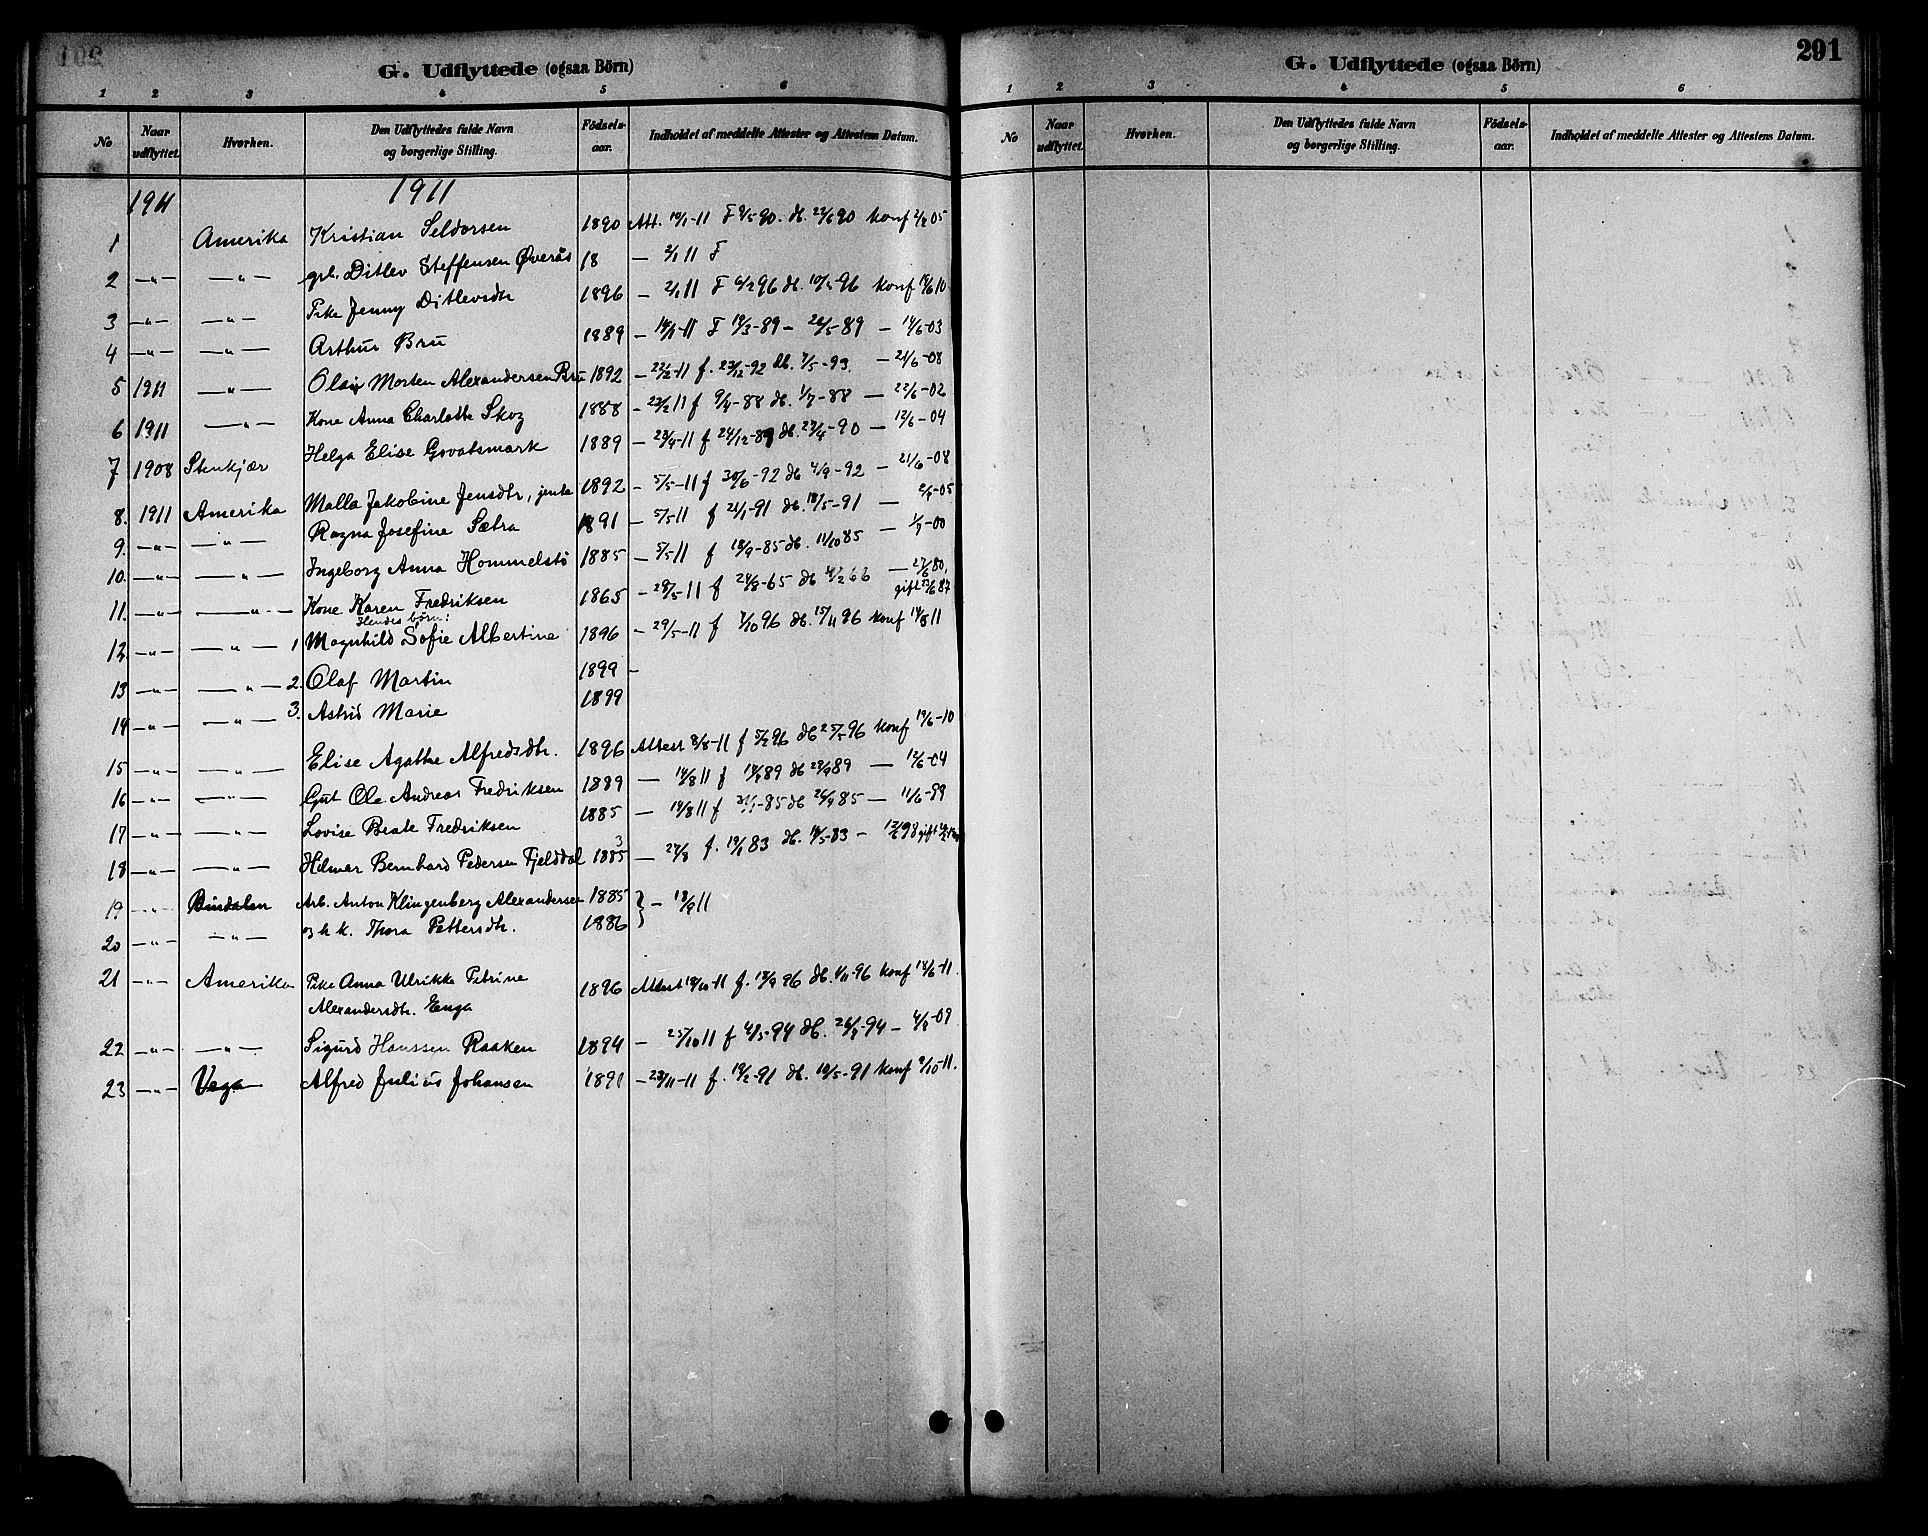 G. Udflyttede (ogsaa Börn)
1 2 3 4 5 6
No Naar udflyttet. Hvorhen. Den Udflyttedes fulde Navn og borgerlige Stilling. Födsels-aar. Indholdet af meddelte Attester og Attestens Datum.
1911 1911
1 Amerika Kristian Seldorsen 1890 Att. F 90. db. konf 05
2 —„— —„— Ditlev Steffensen Øverås 18 — 2/1 11 F
3 —„— —„— Pike Jenny Ditlevsdtr 1896 — 2/1 11 F 96 db. 96 konf 10
4 —„— —„— Arthur Bru 1889 — F 19/3-89 — 26/5-89 — 14/6-03
5 1911 —„— Olaig Morten Alexandersen Bru 1892 — 22/2-11 f. 23/12-92 db. 7/5-93. — 21/6-08
6 1911 —„— Kone Anna Charlotte Skog 1888 — 23/2 11 f 9/4-88 db. 1/7-88 — 22/6-02
7 1908 Stenkjær Helga Elise Grvatsmark 1889 — 23/4-11 f 24/12-89 db. 23/4-90 — 12/6-04
8. 1911 Amerika Malla Jakobine Jensdtr, jente 1892 — 5/5-11 f 30/6-92 db 4/9-92 — 21/6-08
9. —„— —„— Ragna Josefine Sætra 1891 — 5/5-11 f 21/1-91 db. 18/5-91 — -05
10. —„— —„— Ingeborg Anna Hommelstø 1885 — 5/5-11 f 18/9-85 db. 11/10 85 — -00
11. —„— —„— Kone Karen Fredriksen 1865 — 29/5-11 f 24/8-65 db 66 — 27/6 80, gift 23/6 87
Hendes börn:
12. —„— —„— 1 Magnhild Sofie Albertine 1896 — 29/5-11 f 96 db. 15/11 96 konf 11
13 —„— —„— 2. Olaf Martin 1899 —
14 —„— —„— 3. Astrid Marie 1899
15 —„— —„— Elise Agathe Alfredsdtr. 1896 Attest 8/8-11 f 5/2 96 db 96 konf 19/6-10
16 —„— —„— Gut Ole Andreas Fredriksen 1889 — 14/8 11 f 89 db 89 — 12/6-04
17 —„— —„— Lovise Beate Fredriksen 1885 — 19/8 11 f 21/1-85 db 85 — 11/6-99
18 —„— —„— Hilmar Bernhard Pedersen Fjelddal 1885 3 — f. 83 db. 83 — 98 gift
19 —„— Bindalen Arb. Anton Klingenberg Alexandersen 1885 } — 11
20 —„— —„— og h.k. Thora Pettersdtr. 1886
21 —„— Amerika Pike Anna Ulrikke Petrine Alexandersdtr. Enga 1896 Attest 19/10-11 f. 96 db. 1/11-96 konf 18/6-11.
22 —„— —„— Sigurd Hanssen Raaken 1894 — 25/10 11 f 4/5-94 db. -94 — -09
23 —„— Vega Alfred Julius Johansen 1891 — 23/11-11 f. 19/2-91 db. 18/5-91 konf 9/10-11.
G. Udflyttede (ogsaa Börn) 291
1 2 3 4 5 6
No Naar udflyttet. Hvorhen. Den Udflyttedes fulde Navn og borgerlige Stilling. Födsels-aar. Indholdet af meddelte Attester og Attestens Datum.